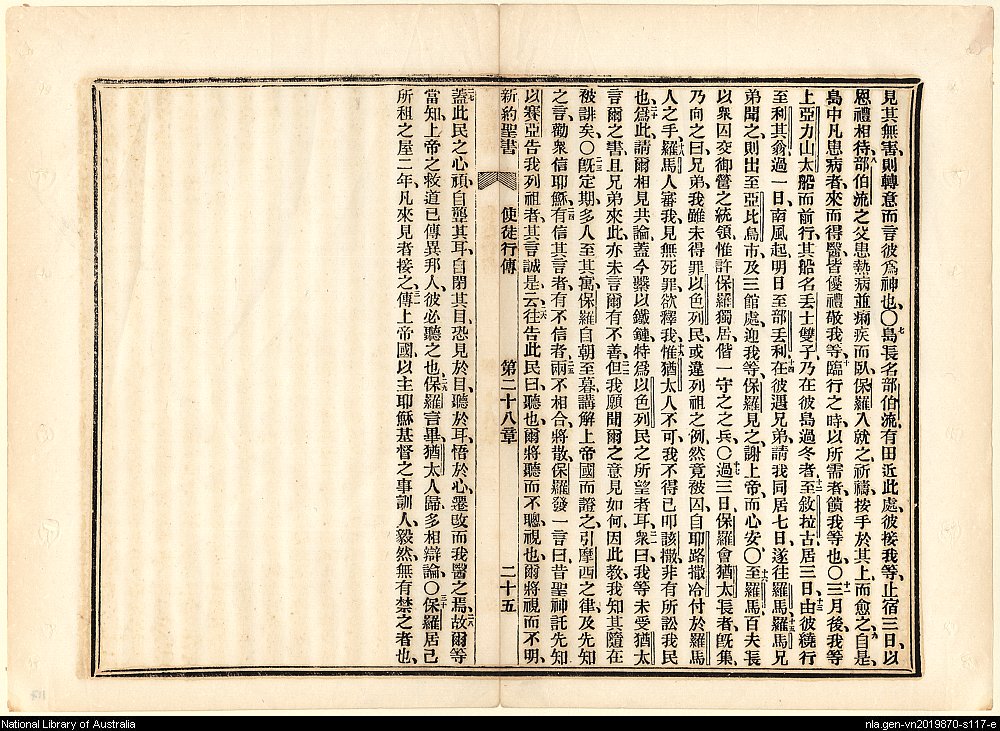 見其無害則轉意而言彼爲神也〇七島長名部伯流有田近此處彼接我等止宿三日以
恩禮相待八部伯流之父患熱病並痢疾而臥保羅入就之祈禱按手於其上而愈之九自是
島中凡患病者來而得醫十皆優禮敬我等臨行之時以所需者餽我等也〇十一三月後我等
上亞力山太船而前行其船名丢士雙子乃在彼島過冬者十二至敘拉古居三日十三由彼繞行
至利其翕過一日南風起明日至部丢利十四在彼遇兄弟請我同居七日遂往羅馬十五羅馬兄
弟聞之則出至亞比烏市及三館處迎我等保羅見之謝上帝而心安〇十六至羅馬百夫長
以衆囚交御營之統領惟許保羅獨居偕一守之之兵〇十七過三日保羅會猶太長者旣集
乃向之曰兄弟我雖未得罪以色列民或違列祖之例然竟被囚自耶路撒冷付於羅馬
人之手十八羅馬人審我見無死罪欲釋我十九惟猶太人不可我不得已叩該撒非有所訟我民
也二十爲此請爾相見共論蓋今繫以鐵鏈特爲以色列民之所望者耳二一衆曰我等未受猶太
言爾之書且兄弟來此亦未言爾有不善二二但我願聞爾之意見如何因此教我知其隨在
被誹矣〇二三旣定期多人至其寓保羅自朝至暮講解上帝國而證之引摩西之律及先知
之言勸衆信耶穌二四有信其言者有不信者二五兩不相合將散保羅發一言曰昔聖神託先知
以賽亞告我列祖者其言誠是二六云往告此民曰聽也爾將聽而不聰視也爾將視而不明
新約聖書 使徒行傳 第二十八章 二十五
二七蓋此民之心頑自聾其耳自閉其目恐見於目聽於耳悟於心遷改而我醫之焉二八故爾等
當知上帝之救道已傳異邦人彼必聽之也二九保羅言畢猶太人歸多相辯論〇三十保羅居己
所租之屋二年凡來見者接之三一傳上帝國以主耶穌基督之事訓人毅然無有禁之者也
National Library of Australia
nla.gen-vn2019870-s117-e